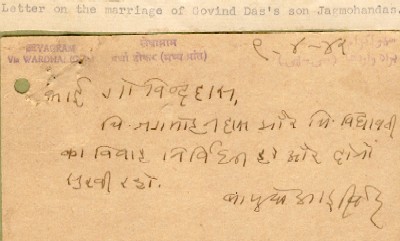 Letter on the marriage of Govind Das's son Jagmohandas.
SEVAGRAM
VIA WARDHA
सेवाग्राम
वर्धा होकर (मध्य प्रांत)
९-४-४१
भाई गोविन्ददास,
चि. जगमोहनदास और चि. विद्यावती
का विवाह निर्विघ्न हो और दोनों
सुखी रहो.
बापुके आशीर्वाद